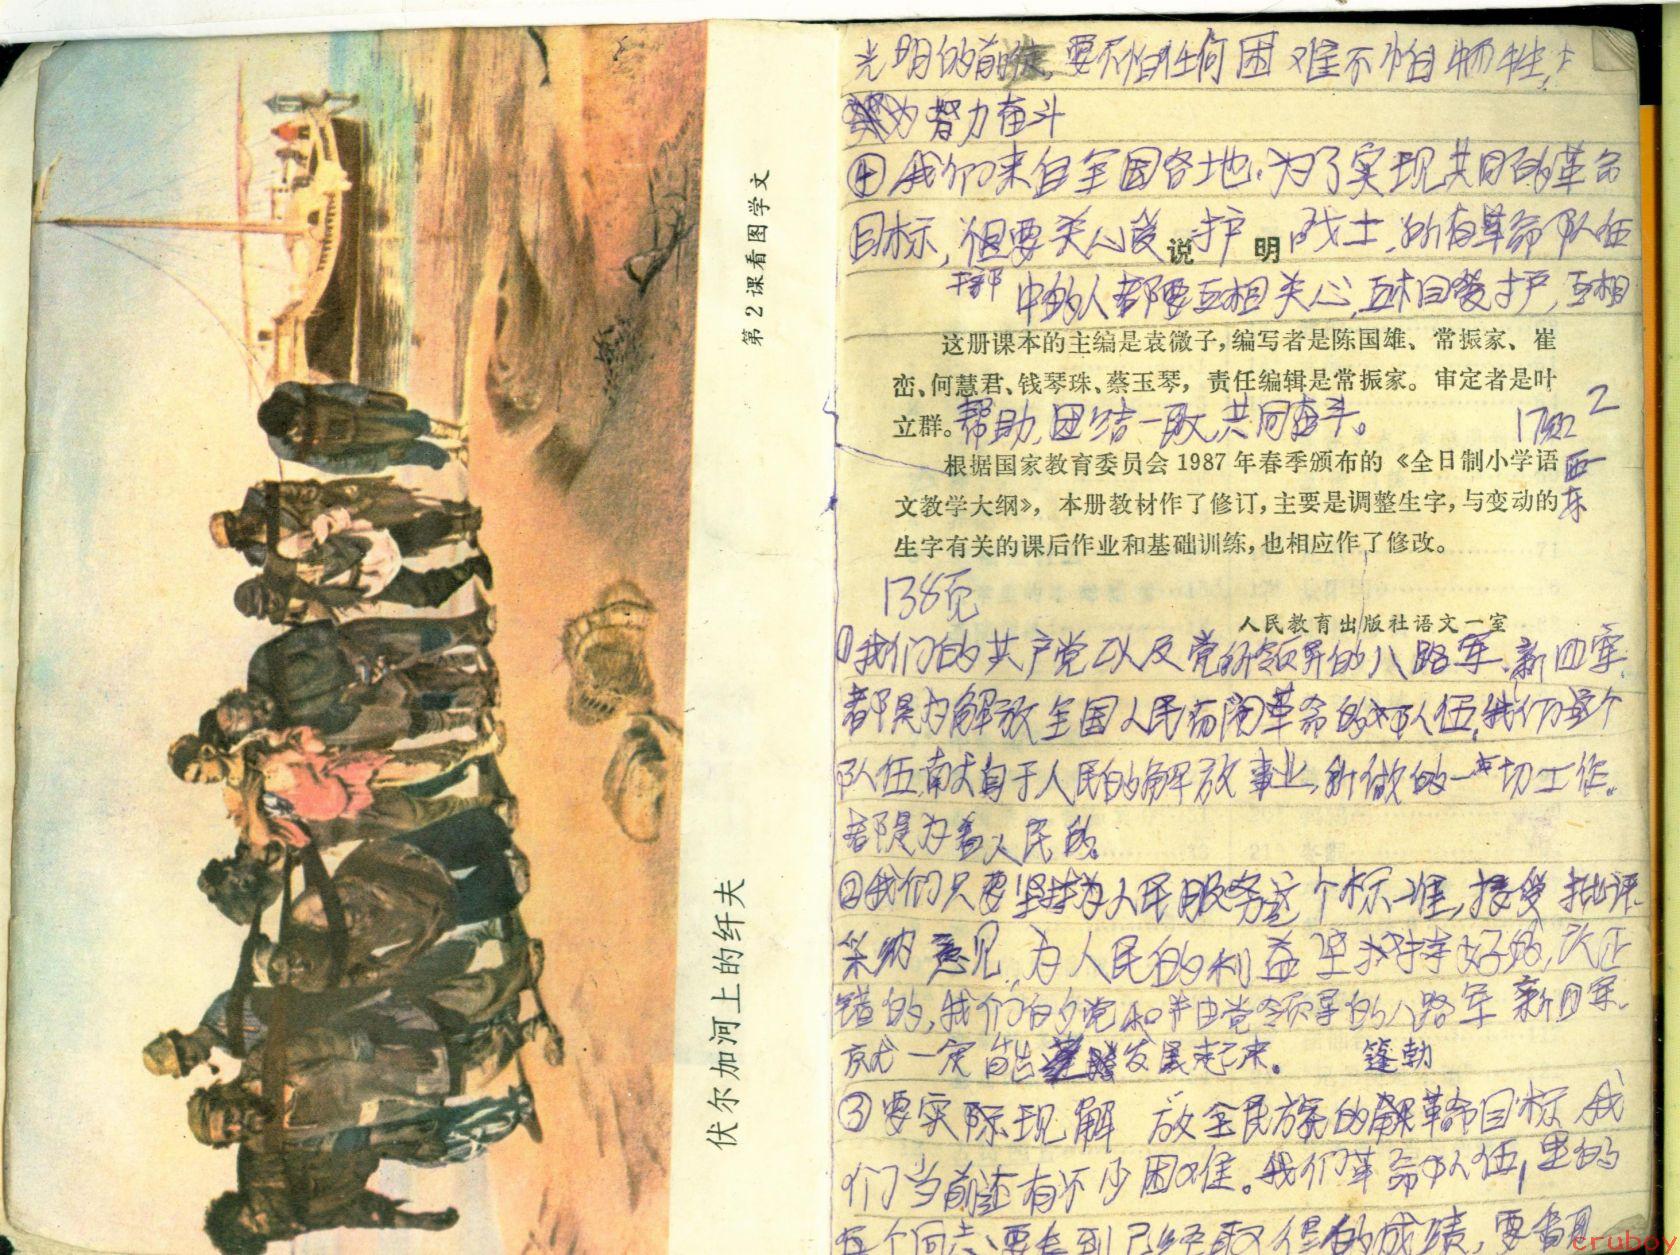 第2课看图学文
伏尔加河上的纤夫
光明的前途,要不怕任何困难不怕牺牲,
努力奋斗
④我们来自全国各地,为了实现共同的革命
目标,但要关心爱护战士,所有革命队伍
说明
干部 中的人都要互相关心,互相爱护,互相
这册课本的主编是袁微子,编写者是陈国雄、常振家、崔
峦、何慧君、钱琴珠、蔡玉琴,责任编辑是常振家。审定者是叶
立群。
帮助,团结一致,共同奋斗。
根据国家教育委员会1987年春季颁布的《全日制小学语
文教学大纲》,本册教材作了修订,主要是调整生字,与变动的
生字有关的课后作业和基础训练,也相应作了修改。
138页
人民教育出版社语文一室
①我们的共产党以及党所领导的八路军、新四军.
都是为解放全国人民而闹革命的队伍,我们这个
队伍,献身于人民的解放事业,所做的一切工作。
都是为着人民的。
②我们只要坚持为人民服务这个标准,接受批评
采纳意见,为人民的利益坚持好的,改正
错的,我们的党和由党领导的八路军新四军.
就一定能发展起来。 蓬勃
③要实际现解放全民族的解革命目标我
们当前还有不少困难。我们革命队伍,里的
每个同志,要看到已经取得的成绩,要看见
cruboy